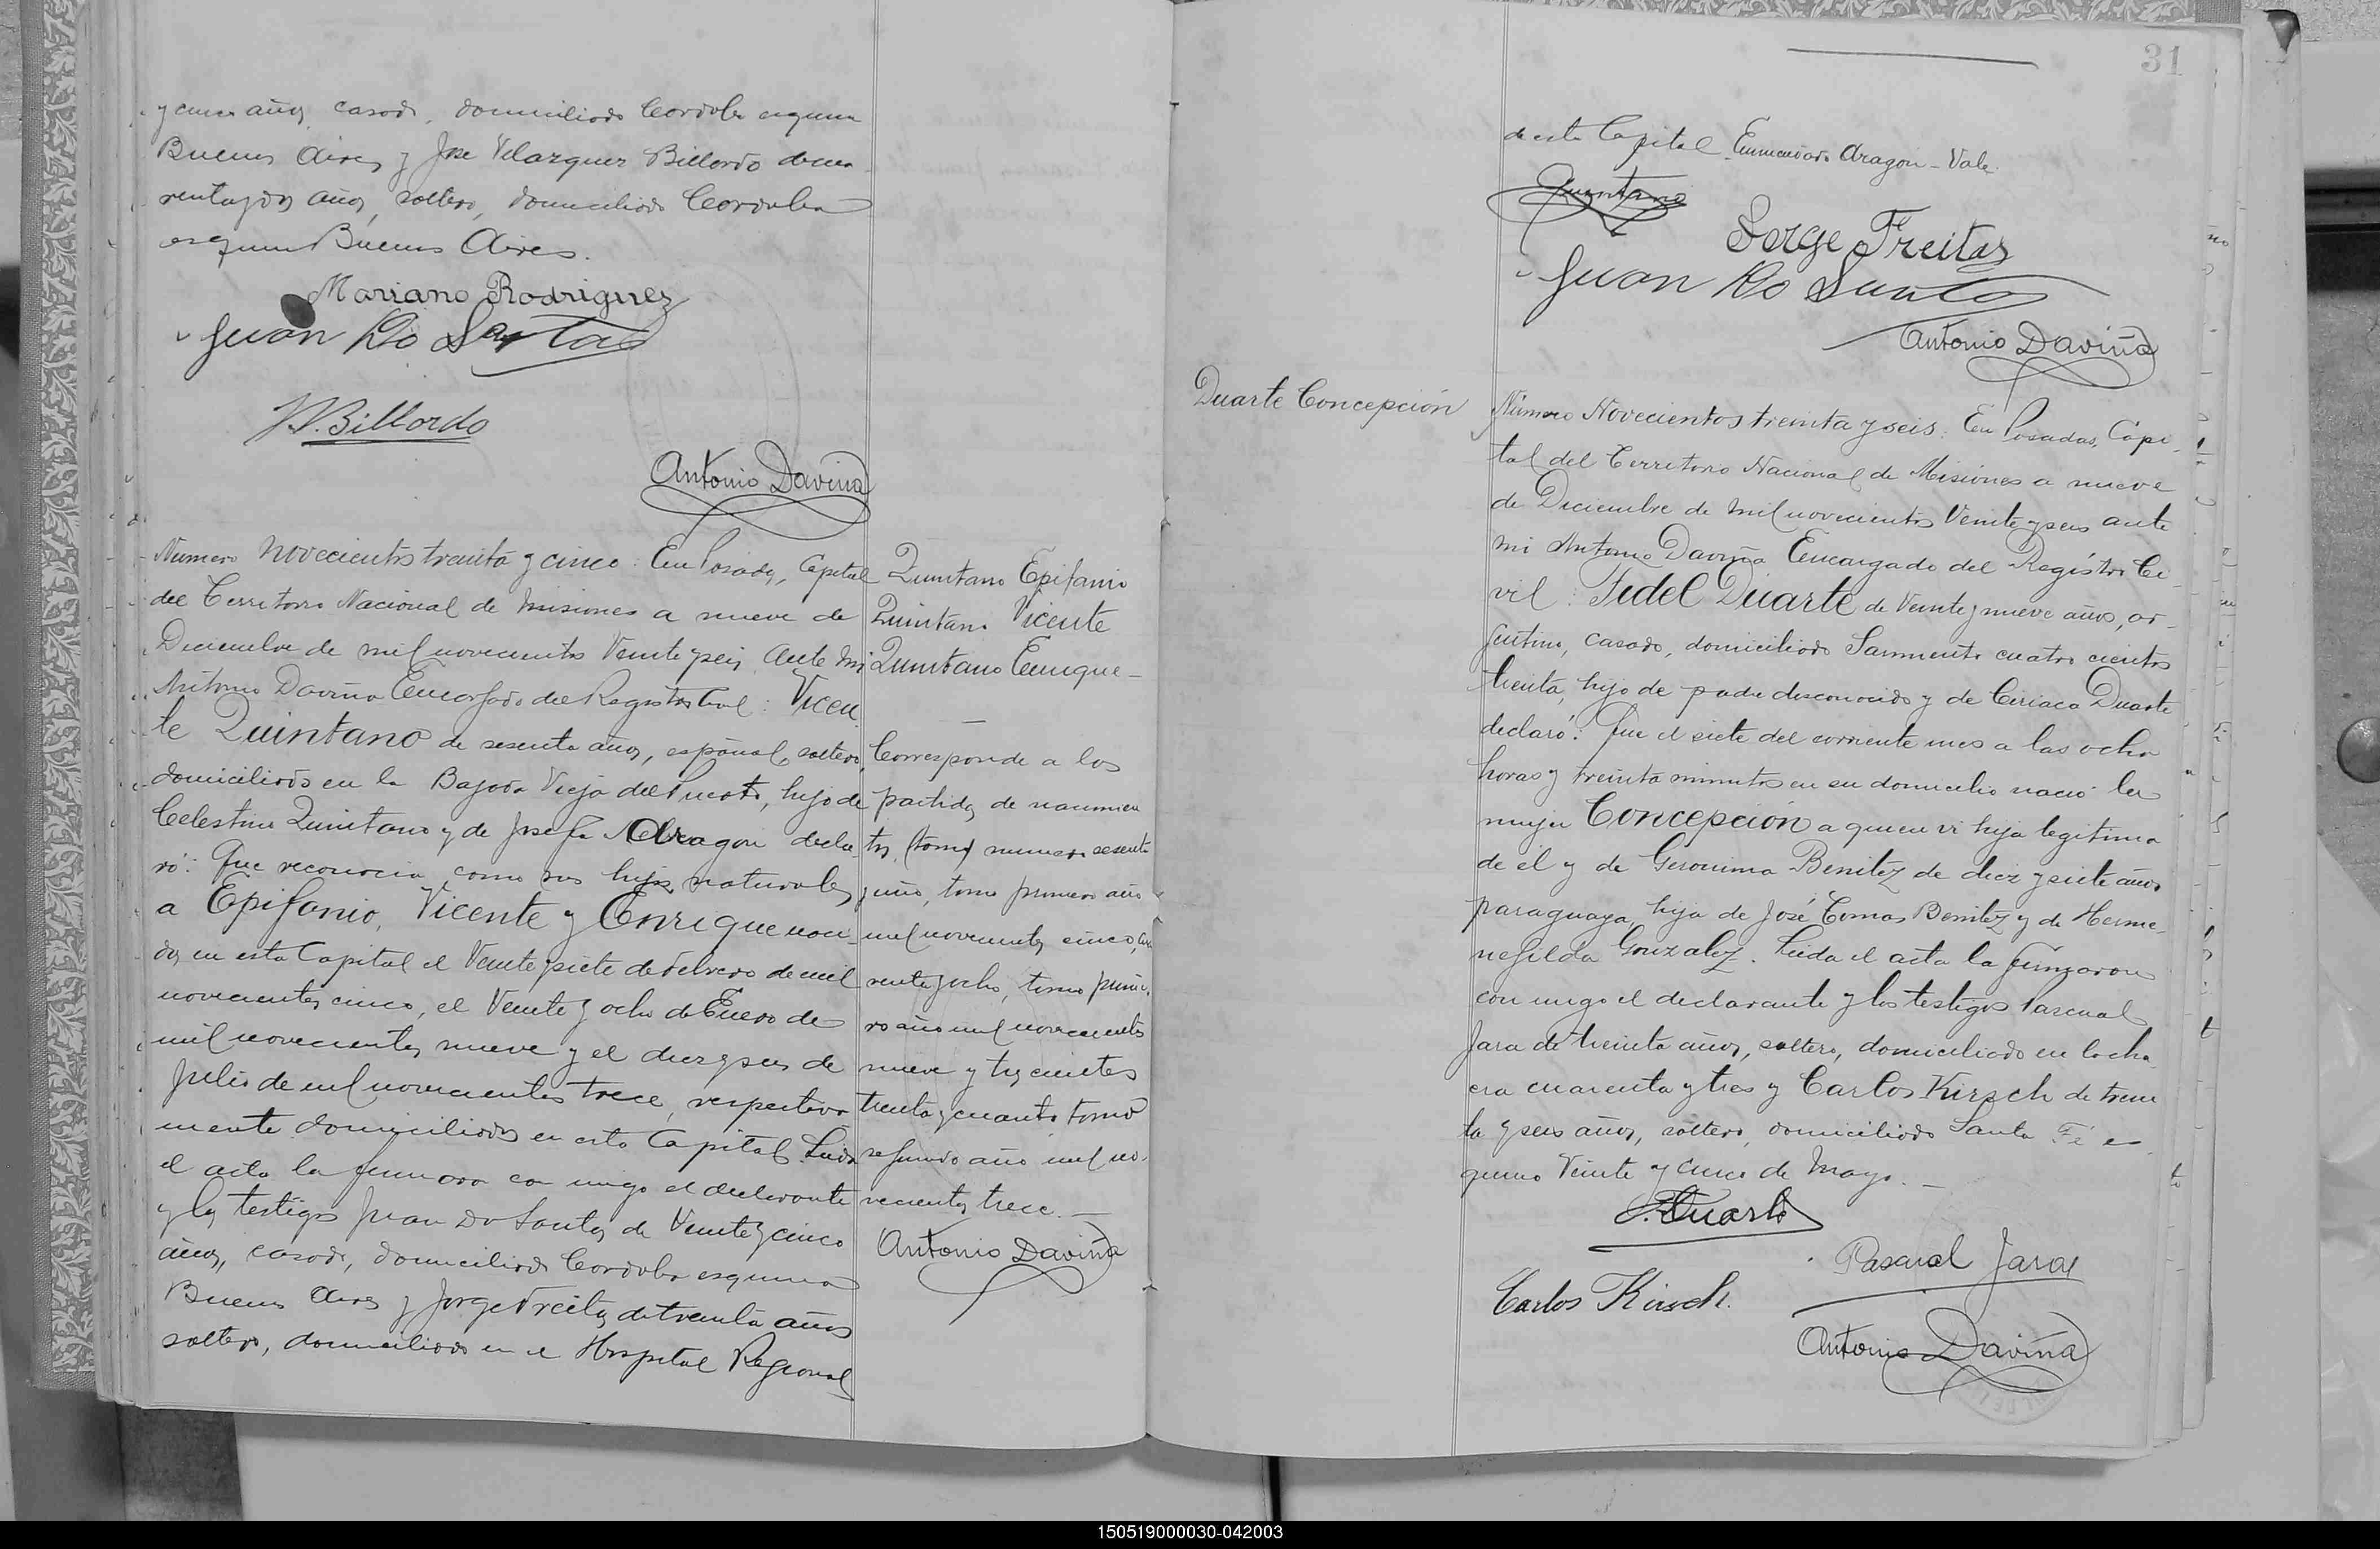 y cinco años, casado, domiciliado Cordoba esquina
Buenos Aires y Jose Velazquez Billordo de cua
rentaydos años, soltero, domiciliado Cordoba
esquina Buenos Aires.
Mariano Rodriguez
Juan Do Santos
J.V. Billordo
Antonio Daviña
Número novecientos treinta y cinco: En Posadas, Capital
del Territorio Nacional de Misiones a nueve de
Diciembre de mil novecientos Veinte y seis, Ante Mi
Antonio Daviña Encargado del Registro Civil: Vicen
te Quintano de sesenta años, español, soltero,
domiciliado en la Bajada Vieja del Puerto, hijo de
Celestino Quintano y de Josefa Aragon decla
ró: Que reconocia como sus hijos naturales
a Epifanio, Vicente y Enrique naci
dos en esta Capital el Veinte y siete de Febrero de mil
novecientos cinco, el Veinte y ocho de Enero de
mil novecientos nueve y el diez y seis de
Julio de mil novecientos trece, respectiva
mente domiciliados en esta Capital. Leida
el acta la firmaron con migo el declarante
y los testigos Juan Do Santos de Veinte y cinco
años, casado, domiciliado Cordoba esquina
Buenos Aires y Jorge Freitas de treinta años
soltero, domiciliado en el Hospital Regional
Quintano Epifanio
Quintano Vicente
Quintano Enrique -
Corresponde a los
partidas de nacimien
tos, (tomo) numero sesenta
y uno, tomo primero año
mil novecientos cinco, cua
renta y ocho, tomo prime
ro año mil novecientos
nueve y trescientos
treinta y cuatro tomo
segundo año mil no-
vecientos trece. -
Antonio Daviña
31
de esta Capital. Enmendado Aragon - Vale.
Quintano
Jorge Freitas
Juan Do Santos
Antonio Daviña
Duarte Concepción
Número Novecientos treinta y seis: En Posadas, Capi-
tal del Territorio Nacional de Misiones a nueve
de Diciembre de mil novecientos Veinte y seis ante
mi Antonio Daviña Encargado del Registro Ci-
vil: Fidel Duarte de Veinte y nueve años, ar-
gentino, casado, domiciliado Sarmiento cuatro cientos
treinta, hijo de padre desconocido y de Ciriaca Duarte
declaró: Que el siete del corriente mes a las ocho
horas y treinta minutos en su domicilio nació la
mujer Concepción a quien vi hija legitima
de él y de Geronima Benitez de diez y siete años
paraguaya, hija de José Tomas Benitez y de Herme-
negilda Gonzalez. Leida el acta la firmaron
con migo el declarante y los testigos Pascual
Jara de treinta años, soltero, domiciliado en la cha
cra cuarenta y tres y Carlos Kirsch de trein
ta y seis años, soltero, domiciliado Santa Fé es
quina Veinte y cinco de Mayo. -
F. Duarte
Pascual Jara
Carlos Kirsch.
Antonio Daviña
150519000030-042003